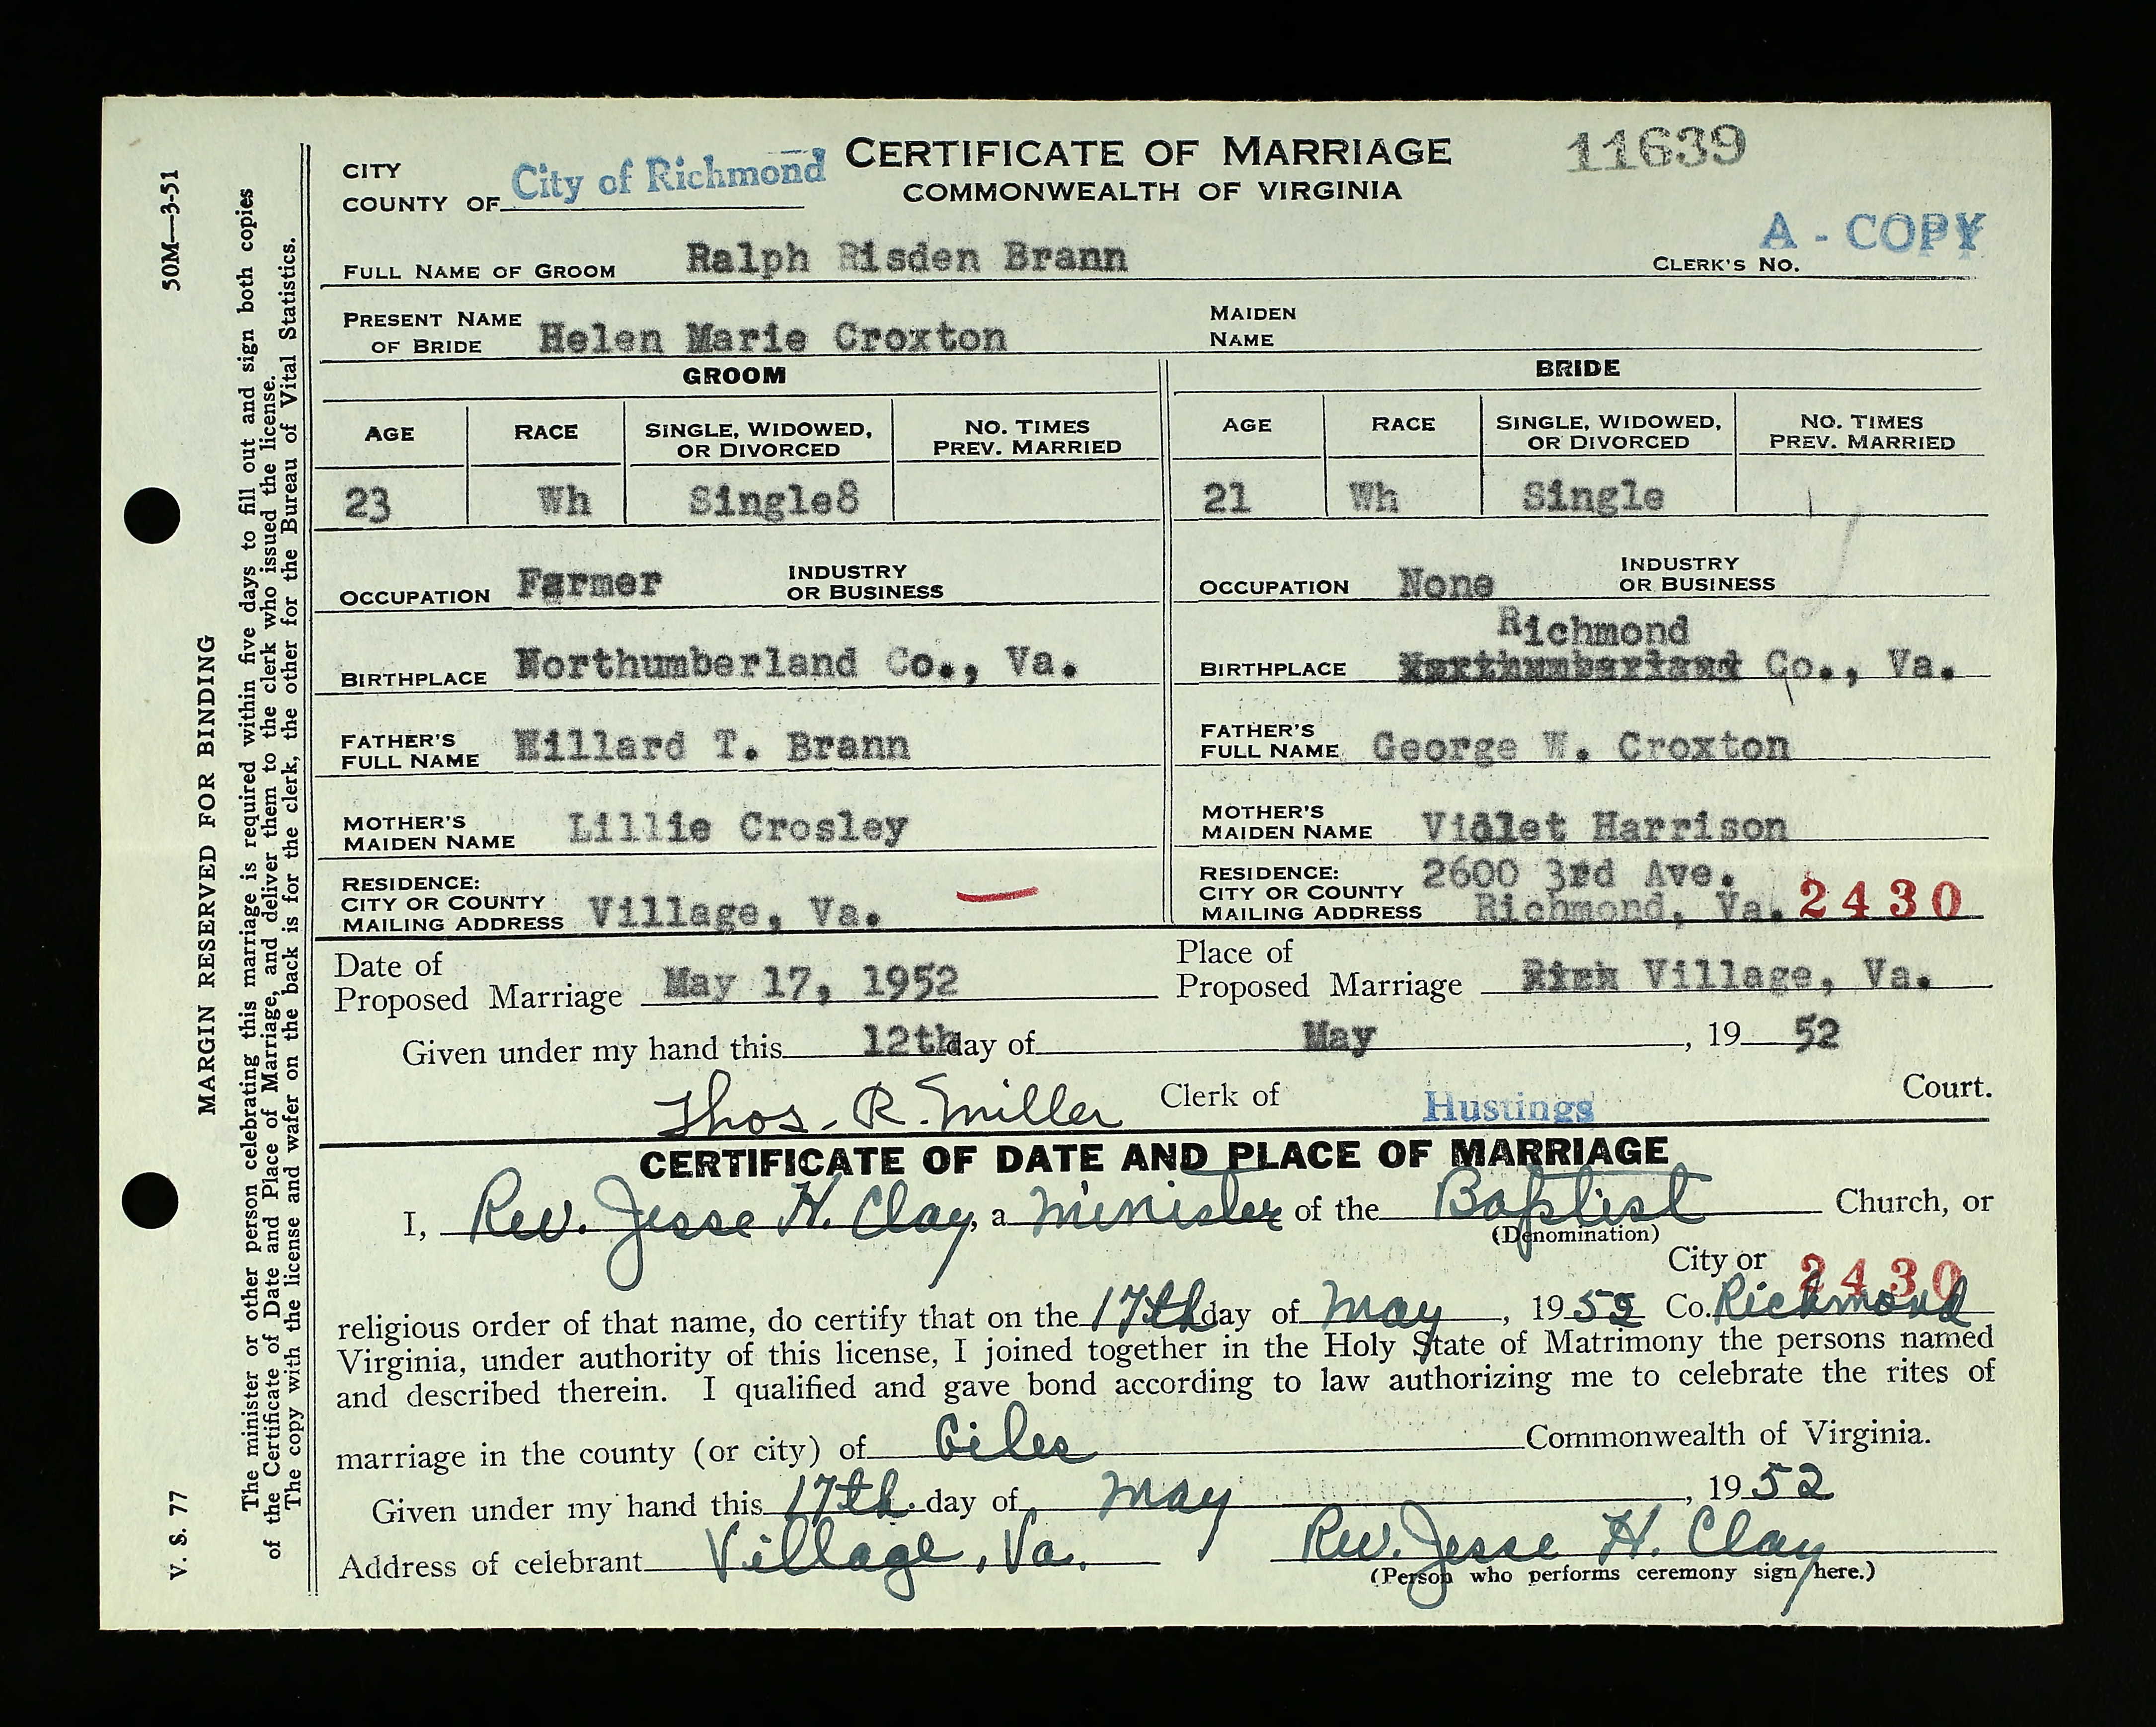 50M—3-51
MARGIN RESERVED FOR BINDING
V. S. 77
The minister or other person celebrating this marriage is required within five days to fill out and sign both copies
of the Certificate of Date and Place of Marriage, and deliver them to the clerk who issued the license.
The copy with the license and wafer on the back is for the clerk, the other for the Bureau of Vital Statistics.
CERTIFICATE OF MARRIAGE
COMMONWEALTH OF VIRGINIA
11639
CITY
COUNTY OF City of Richmond
A - COPY
FULL NAME OF GROOM Ralph Risden Brann CLERK'S NO.
PRESENT NAME OF BRIDE Helen Marie Croxton MAIDEN NAME
GROOM BRIDE
AGE RACE SINGLE, WIDOWED, OR DIVORCED NO. TIMES PREV. MARRIED AGE RACE SINGLE, WIDOWED, OR DIVORCED NO. TIMES PREV. MARRIED
23 Wh Single8 21 Wh Single
OCCUPATION Farmer INDUSTRY OR BUSINESS OCCUPATION None INDUSTRY OR BUSINESS
Richmond
BIRTHPLACE Northumberland Co., Va. BIRTHPLACE Northumberland Co., Va.
FATHER'S FULL NAME Willard T. Brann FATHER'S FULL NAME George W. Croxton
MOTHER'S MAIDEN NAME Lillie Crosley MOTHER'S MAIDEN NAME Violet Harrison
RESIDENCE: CITY OR COUNTY MAILING ADDRESS Village, Va. RESIDENCE: CITY OR COUNTY MAILING ADDRESS 2600 3rd Ave. Richmond, Va. 2430
Date of Proposed Marriage May 17, 1952 Place of Proposed Marriage Rich Village, Va.
Given under my hand this 12th day of May, 19 52
Thos. R. Miller Clerk of Hustings Court.
CERTIFICATE OF DATE AND PLACE OF MARRIAGE
I, Rev. Jesse H. Clay, a minister of the Baptist Church, or
(Denomination)
City or 2430
religious order of that name, do certify that on the 17th day of May, 1952 Co. Richmond
Virginia, under authority of this license, I joined together in the Holy State of Matrimony the persons named
and described therein. I qualified and gave bond according to law authorizing me to celebrate the rites of
marriage in the county (or city) of Giles Commonwealth of Virginia.
Given under my hand this 17th day of May, 1952
Address of celebrant Village, Va. Rev. Jesse H. Clay
(Person who performs ceremony sign here.)